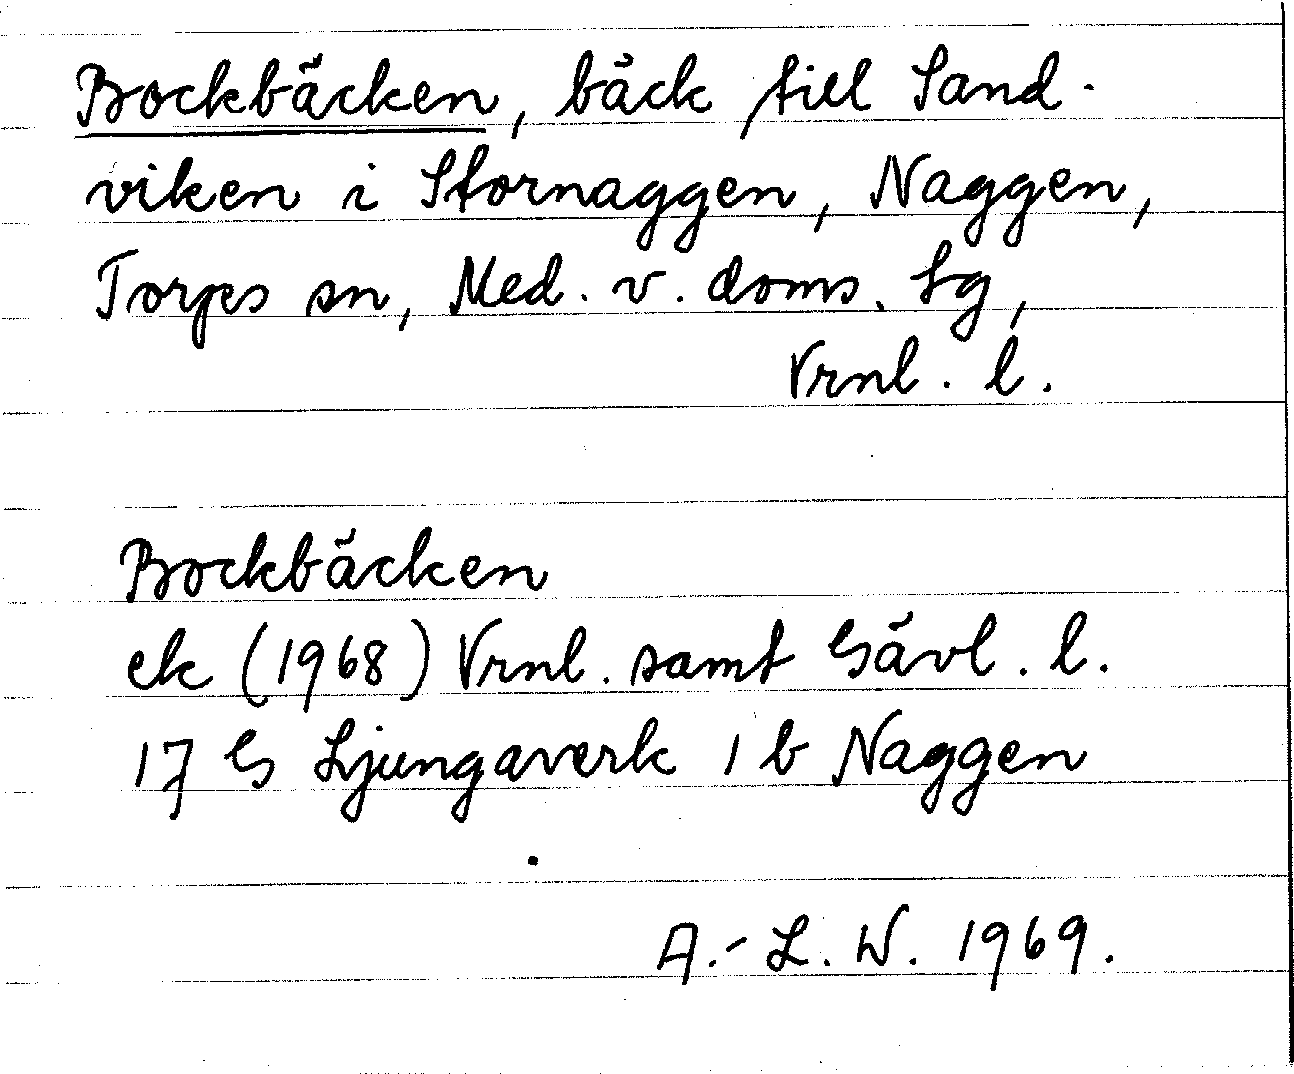 Bockbäcken, bäck till Sand-
viken i Stornaggen, Naggen,
Torps sn, Med. v. doms. tg,
Vrnl. l.
Bockbäcken
ek (1968) Vrnl. samt Gävl. l.
17 G Ljungaverk 1 b Naggen
A.-L. W. 1969.